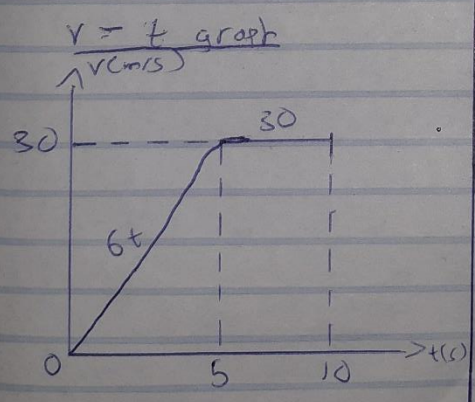 v - t graph
v(m/s)
30
30
6t
0
5
10
t(s)